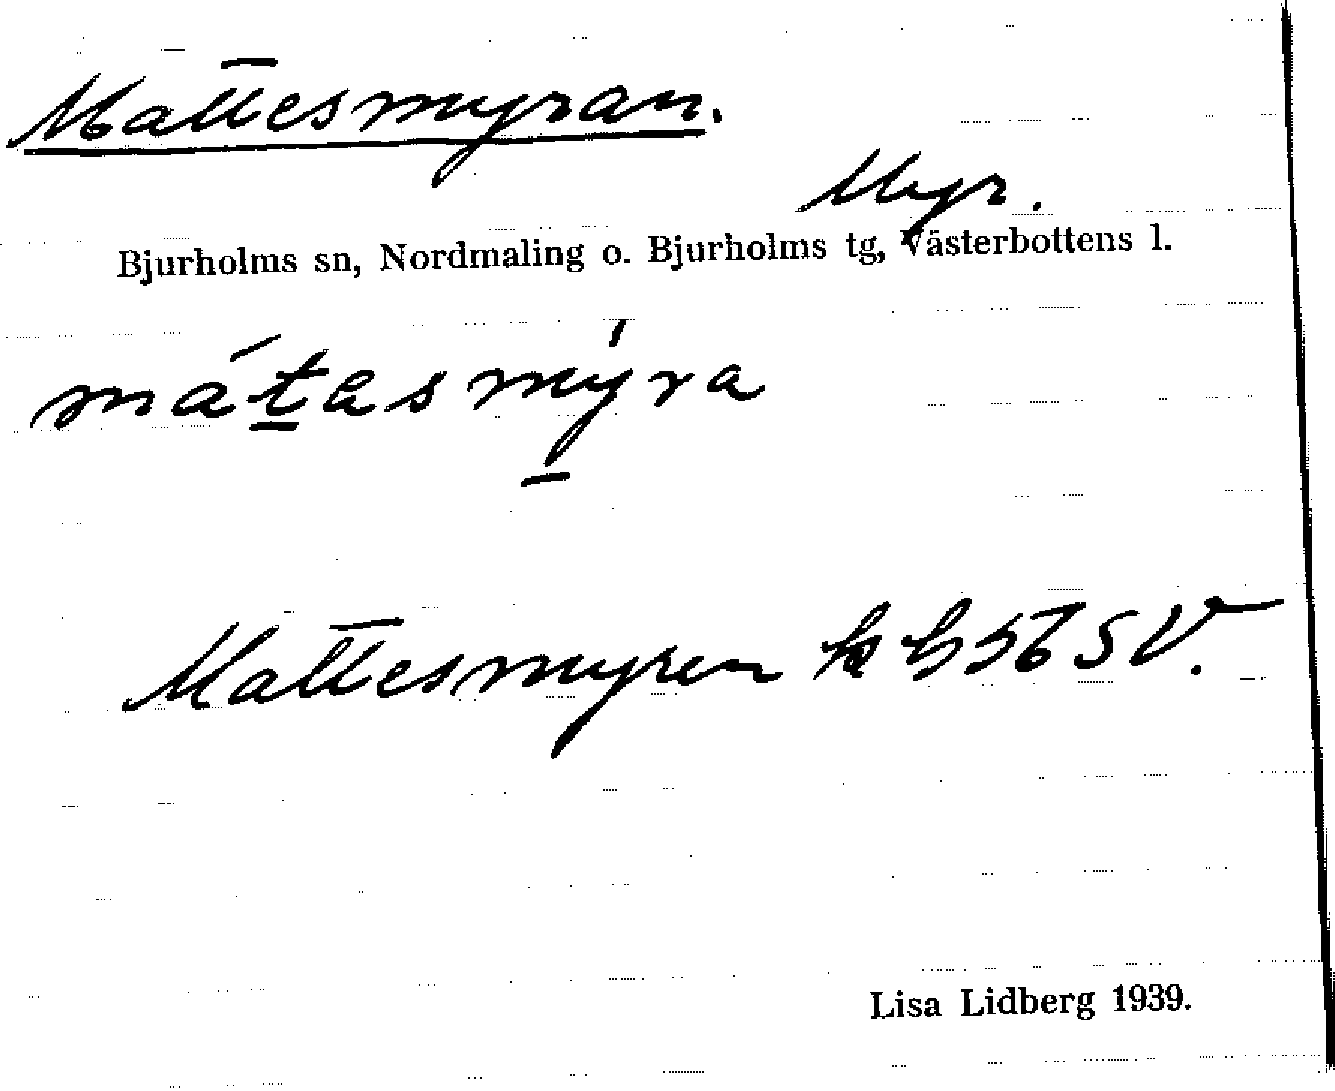 Mattesmyran.
Myr.
Bjurholms sn, Nordmaling o. Bjurholms tg, Västerbottens l.
mátasmýra
Mattesmyren
56 SV.
Lisa Lidberg 1939.